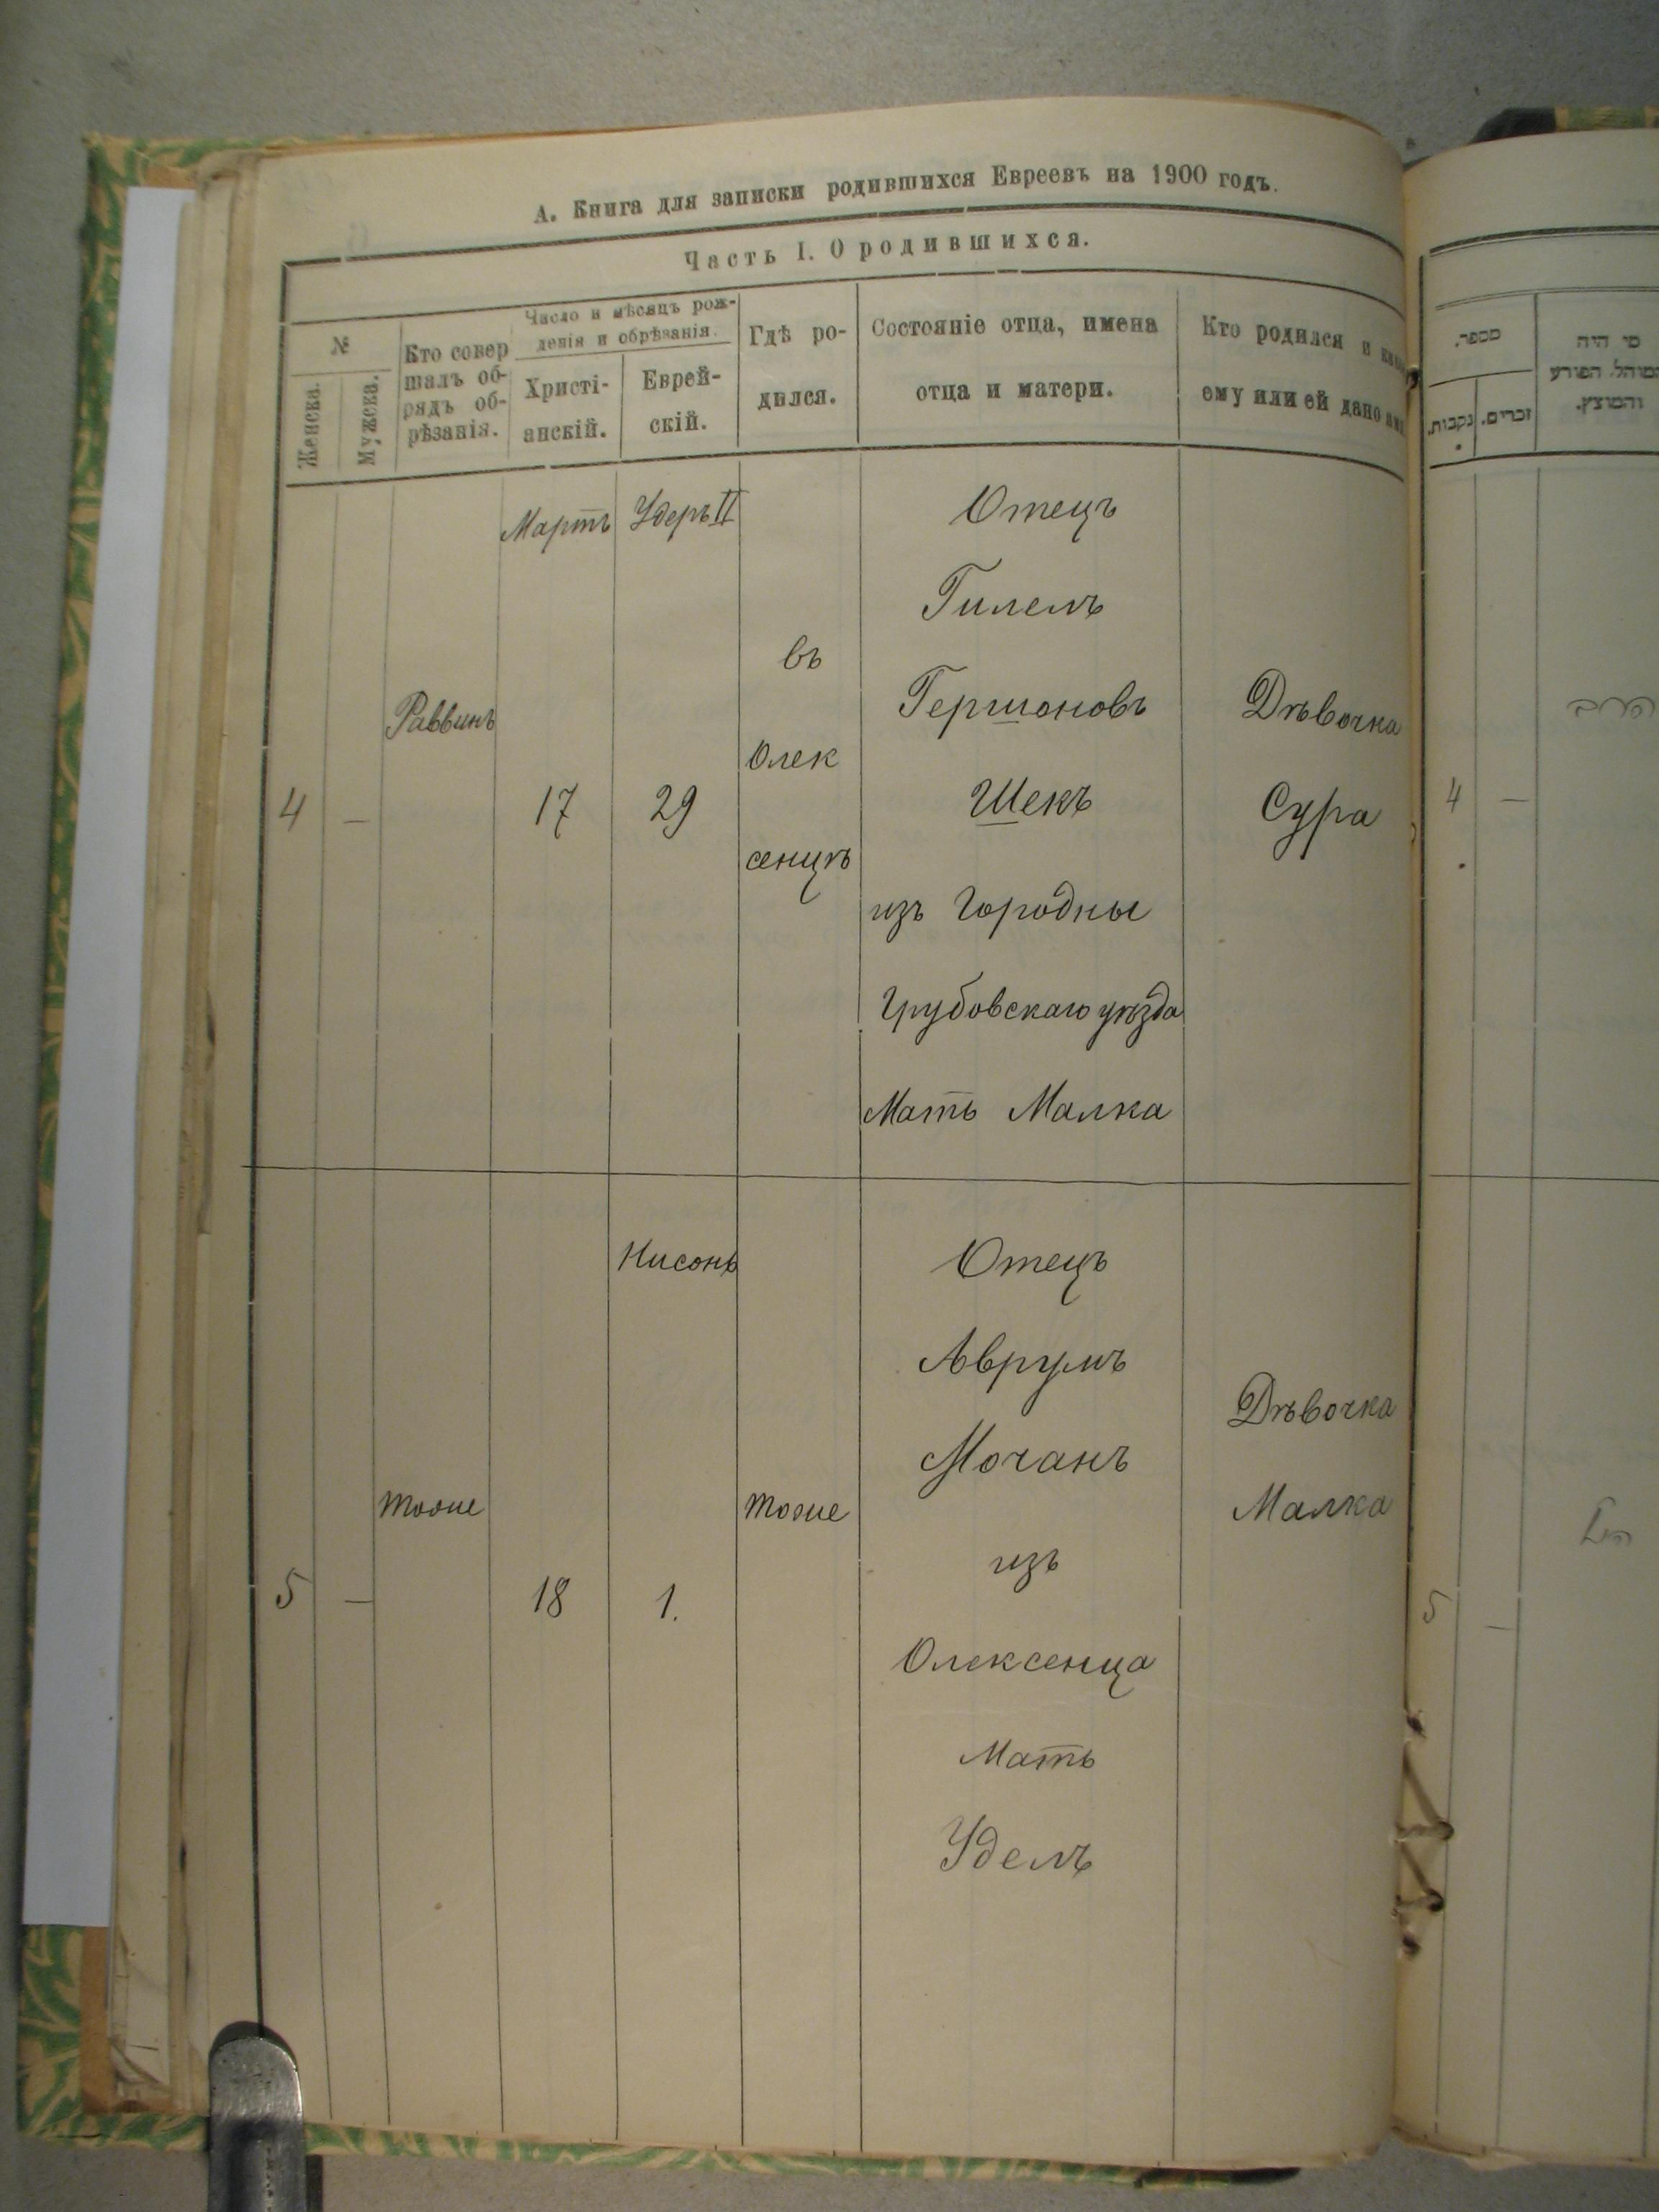 А. Книга для записки родившихся Евреевъ на 1900 годъ.
Часть I. О родившихся.
№
Женска.
Мужска.
Кто совер
шалъ об-
рядъ об-
рѣзанія.
Число и мѣсяцъ рож-
денія и обрѣзанія.
Христі-
анскій.
Еврей-
скій.
Гдѣ ро-
дился.
Состояніе отца, имена
отца и матери.
Кто родился и
ему или ей дано
Мартъ
Удеръ II
4
—
Раввинъ
17
29
въ
Олек
сенцѣ
Отецъ
Гилелъ
Гершоновъ
Шекъ
изъ Городны
Грубовскаго уѣзда
Мать Малка
Дѣвочка
Сура
5
—
тоже
18
Нисонъ
1.
тоже
Отецъ
Аврумъ
Мочанъ
изъ
Олексенца
Мать
Удель
Дѣвочка
Малка
מספר.
נקבות.
זכרים.
מי היה
המוהל הפורע
והמוצץ.
4
—
הרב
5
—